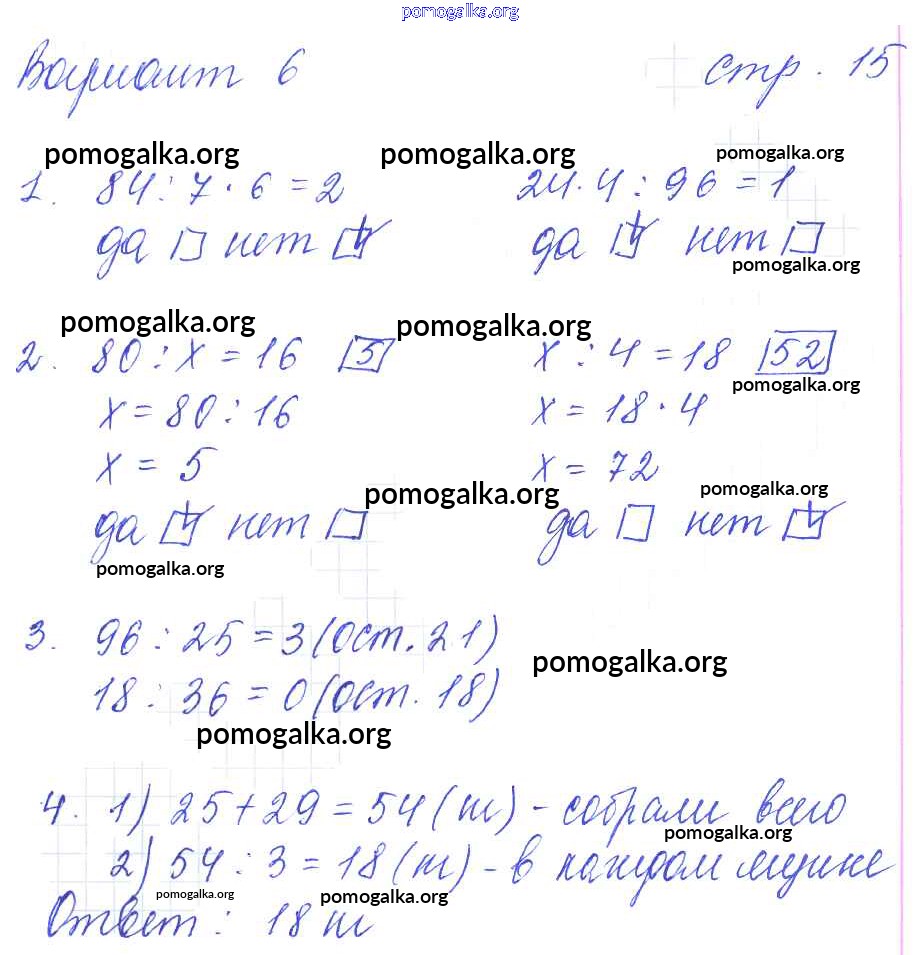 pomogalka.org
Вариант 6 стр. 15
pomogalka.org pomogalka.org pomogalka.org
1. 84 : 7 · 6 = 2 24 · 4 : 96 = 1
да □ нет ☑ да ☑ нет □
pomogalka.org
pomogalka.org pomogalka.org
2. 80 : x = 16 5 x : 4 = 18 52
pomogalka.org
x = 80 : 16 x = 18 · 4
x = 5 x = 72
pomogalka.org pomogalka.org
да ☑ нет □ да □ нет ☑
pomogalka.org
3. 96 : 25 = 3 (ост. 21)
pomogalka.org
18 : 36 = 0 (ост. 18)
pomogalka.org
4. 1) 25 + 29 = 54 (т) - собрали всего
pomogalka.org
2) 54 : 3 = 18 (т) - в каждом ящике
pomogalka.org pomogalka.org
Ответ : 18 т